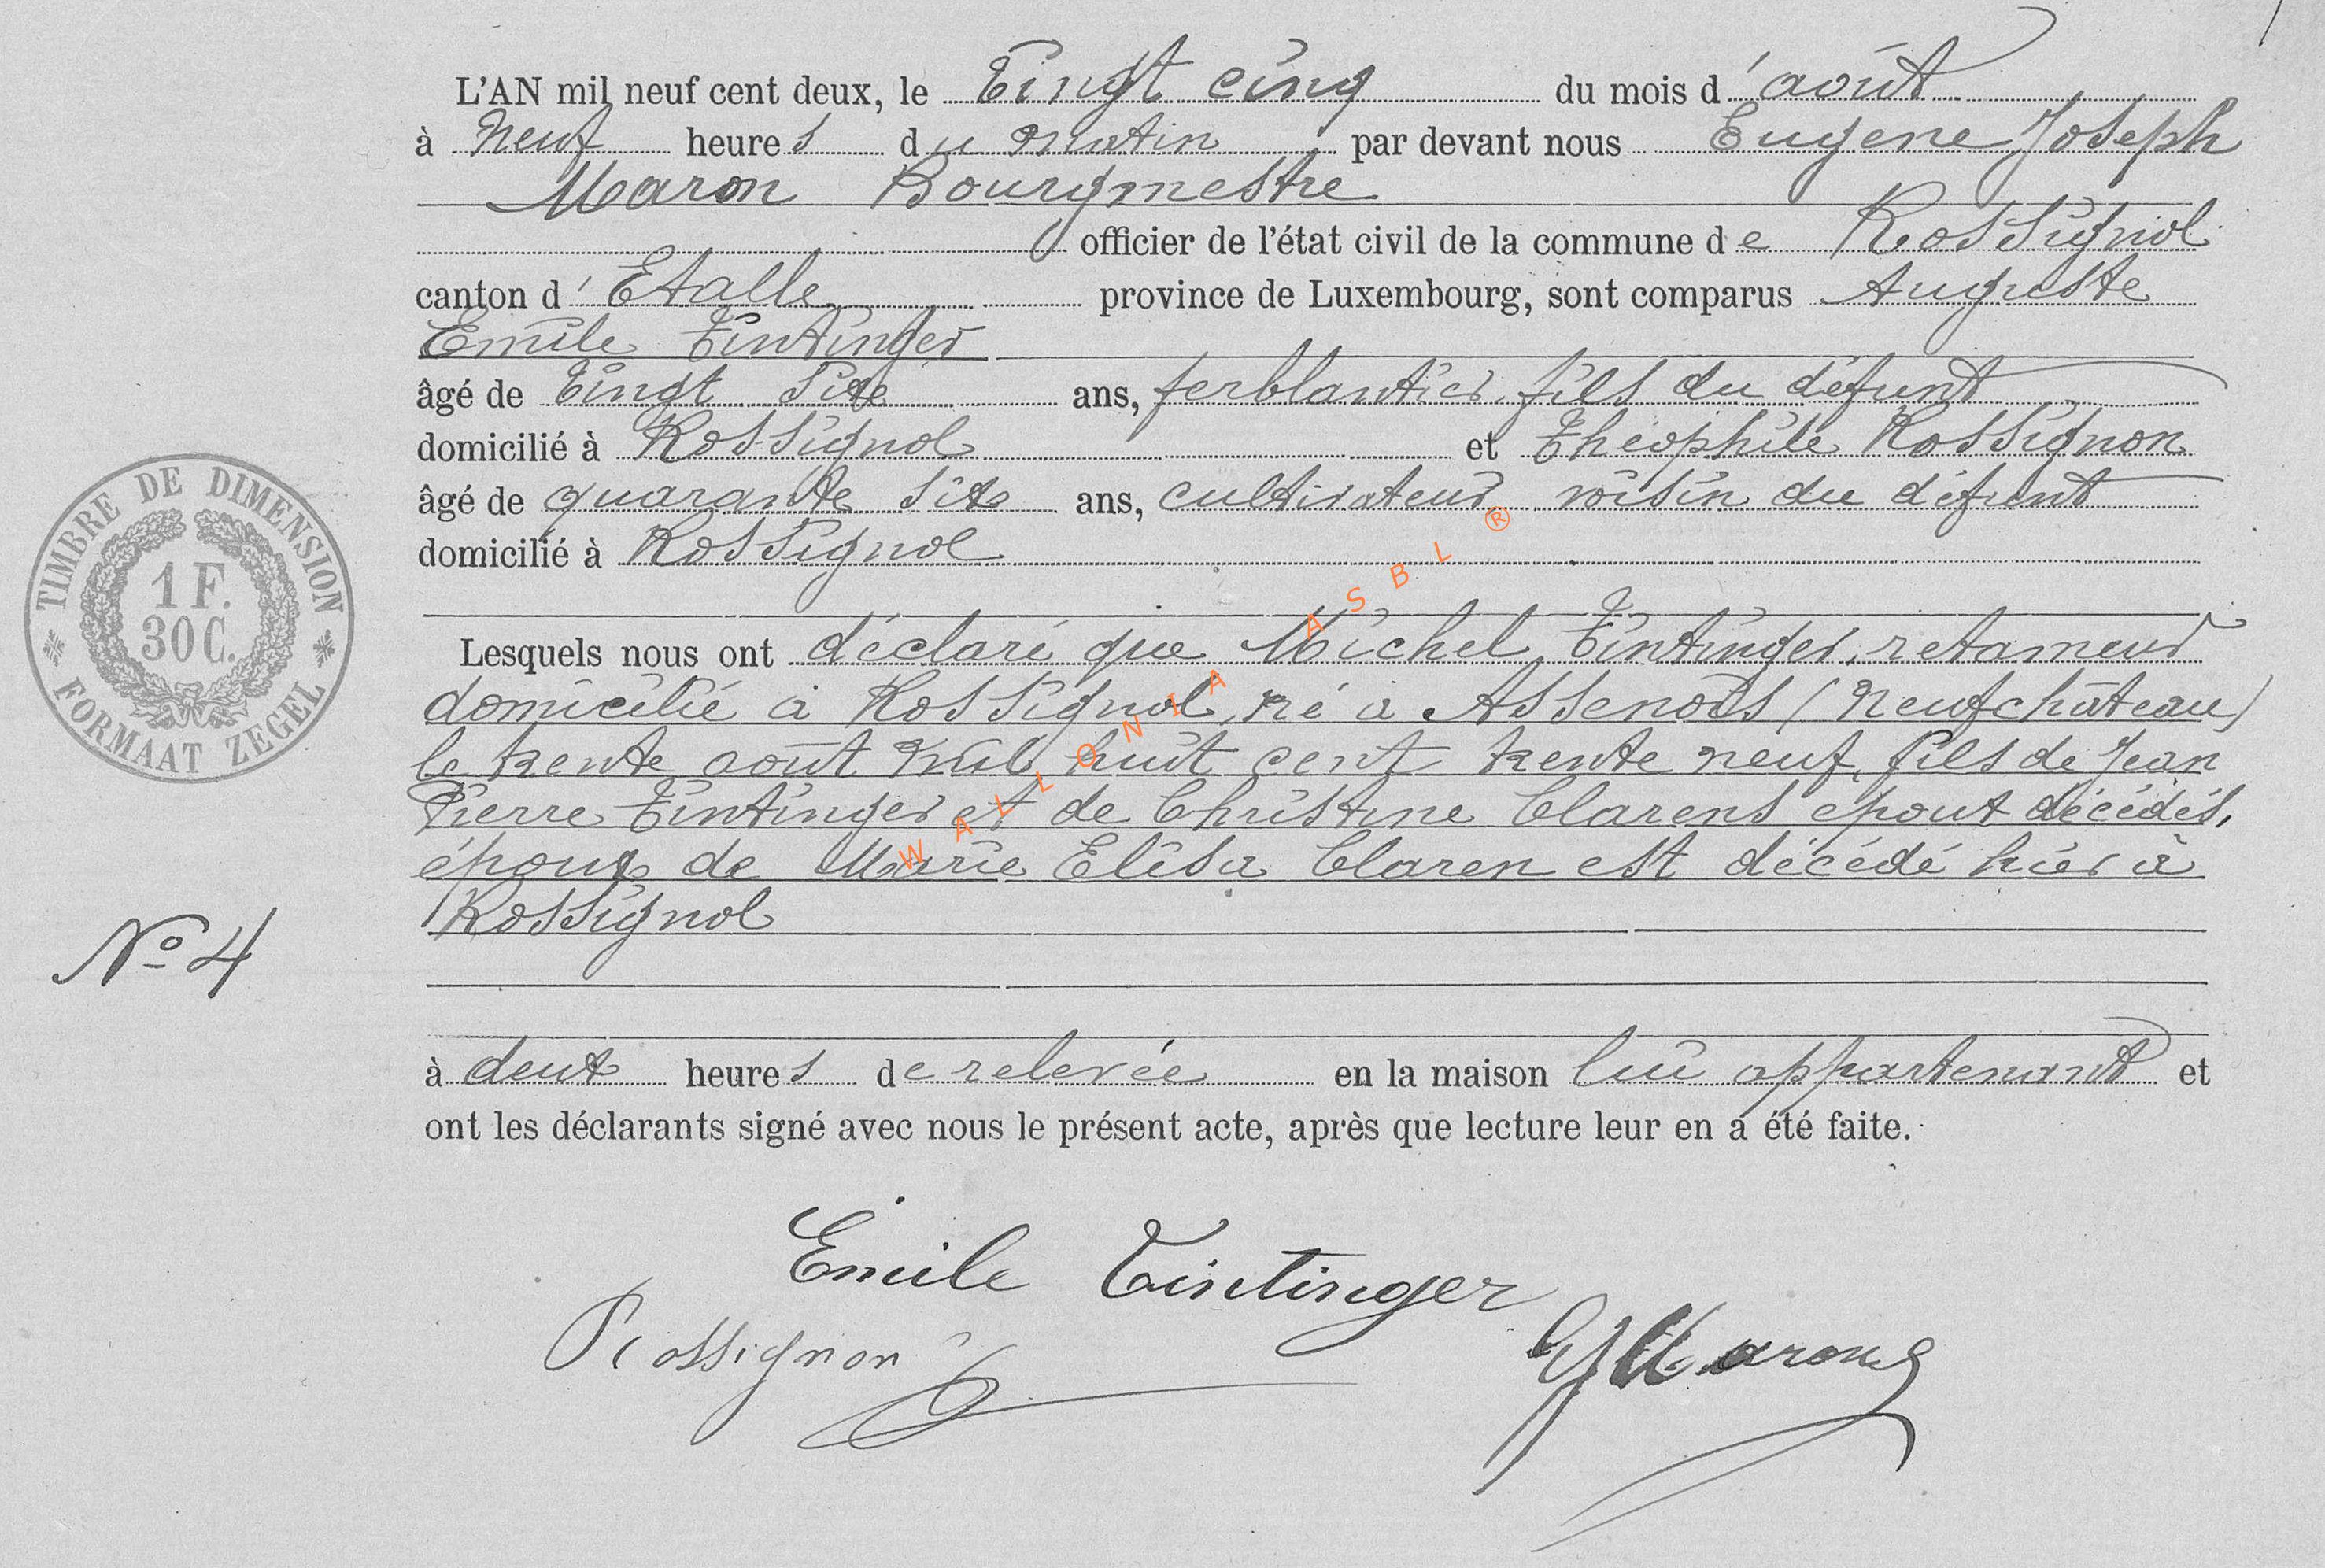 L'AN mil neuf cent deux, le Vingt cinq du mois d'août
à neuf heures du matin par devant nous Eugene Joseph
Maron Bourgmestre
officier de l'état civil de la commune de Rossignol
canton d'Etalle province de Luxembourg, sont comparus Auguste
Emile Tintinger
âgé de Vingt six ans, ferblantier, fils du défunt
domicilié à Rossignol et Théophile Rossignon
âgé de quarante six ans, cultivateur voisin du défunt
domicilié à Rossignol
Lesquels nous ont déclaré que Michel Tintinger, retameur
domicilié à Rossignol, né à Assenois (Neufchâteau)
le trente août mil huit cent trente neuf, fils de Jean
Pierre Tintinger et de Christine Clarens epoux décédés,
époux de Marie Elisa Claren est décédé hier à
Rossignol
No 4
à deux heures de relevée en la maison lui appartenant et
ont les déclarants signé avec nous le présent acte, après que lecture leur en a été faite.
Emile Tintinger
Rossignon
EJMaron
TIMBRE DE DIMENSION
1 F.
30 C.
FORMAAT ZEGEL
WALLONIA ASBL ®